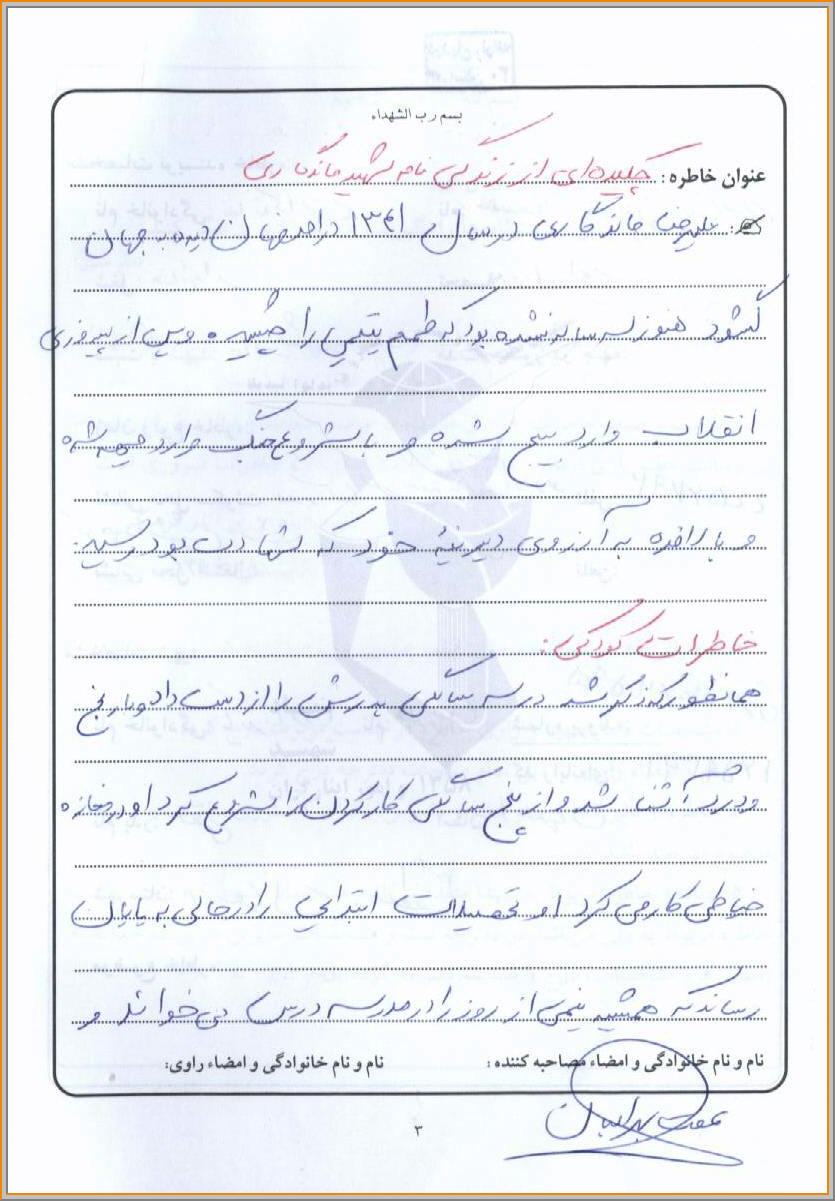 بسم رب الشهداء
عنوان خاطره: چکیده‌ای از زندگی نامه شهید ماندگاری
علیرضا ماندگاری در سال ۱۳۴۱ در اصفهان دیده به جهان
گشود هنوز سه ساله نشده بود که طعم یتیمی را چشید. و پس از پیروزی
انقلاب وارد بسیج شده و با شروع جنگ وارد جبهه شده
و بالاخره به آرزوی دیرینهٔ خود که شهادت بود رسید.
خاطرات کودکی:
همانطور که ذکر شد در سه سالگی پدرش را از دست داد و با رنج
و درد آشنا شد و از پنج سالگی کار کردن را شروع کرد او در مغازه
خیاطی کار می کرد او تحصیلات ابتدایی را در حالی به پایان
رساند که همیشه نیمی از روز را در مدرسه درس می خواند و
نام و نام خانوادگی و امضاء مصاحبه کننده: نام و نام خانوادگی و امضاء راوی:
۳